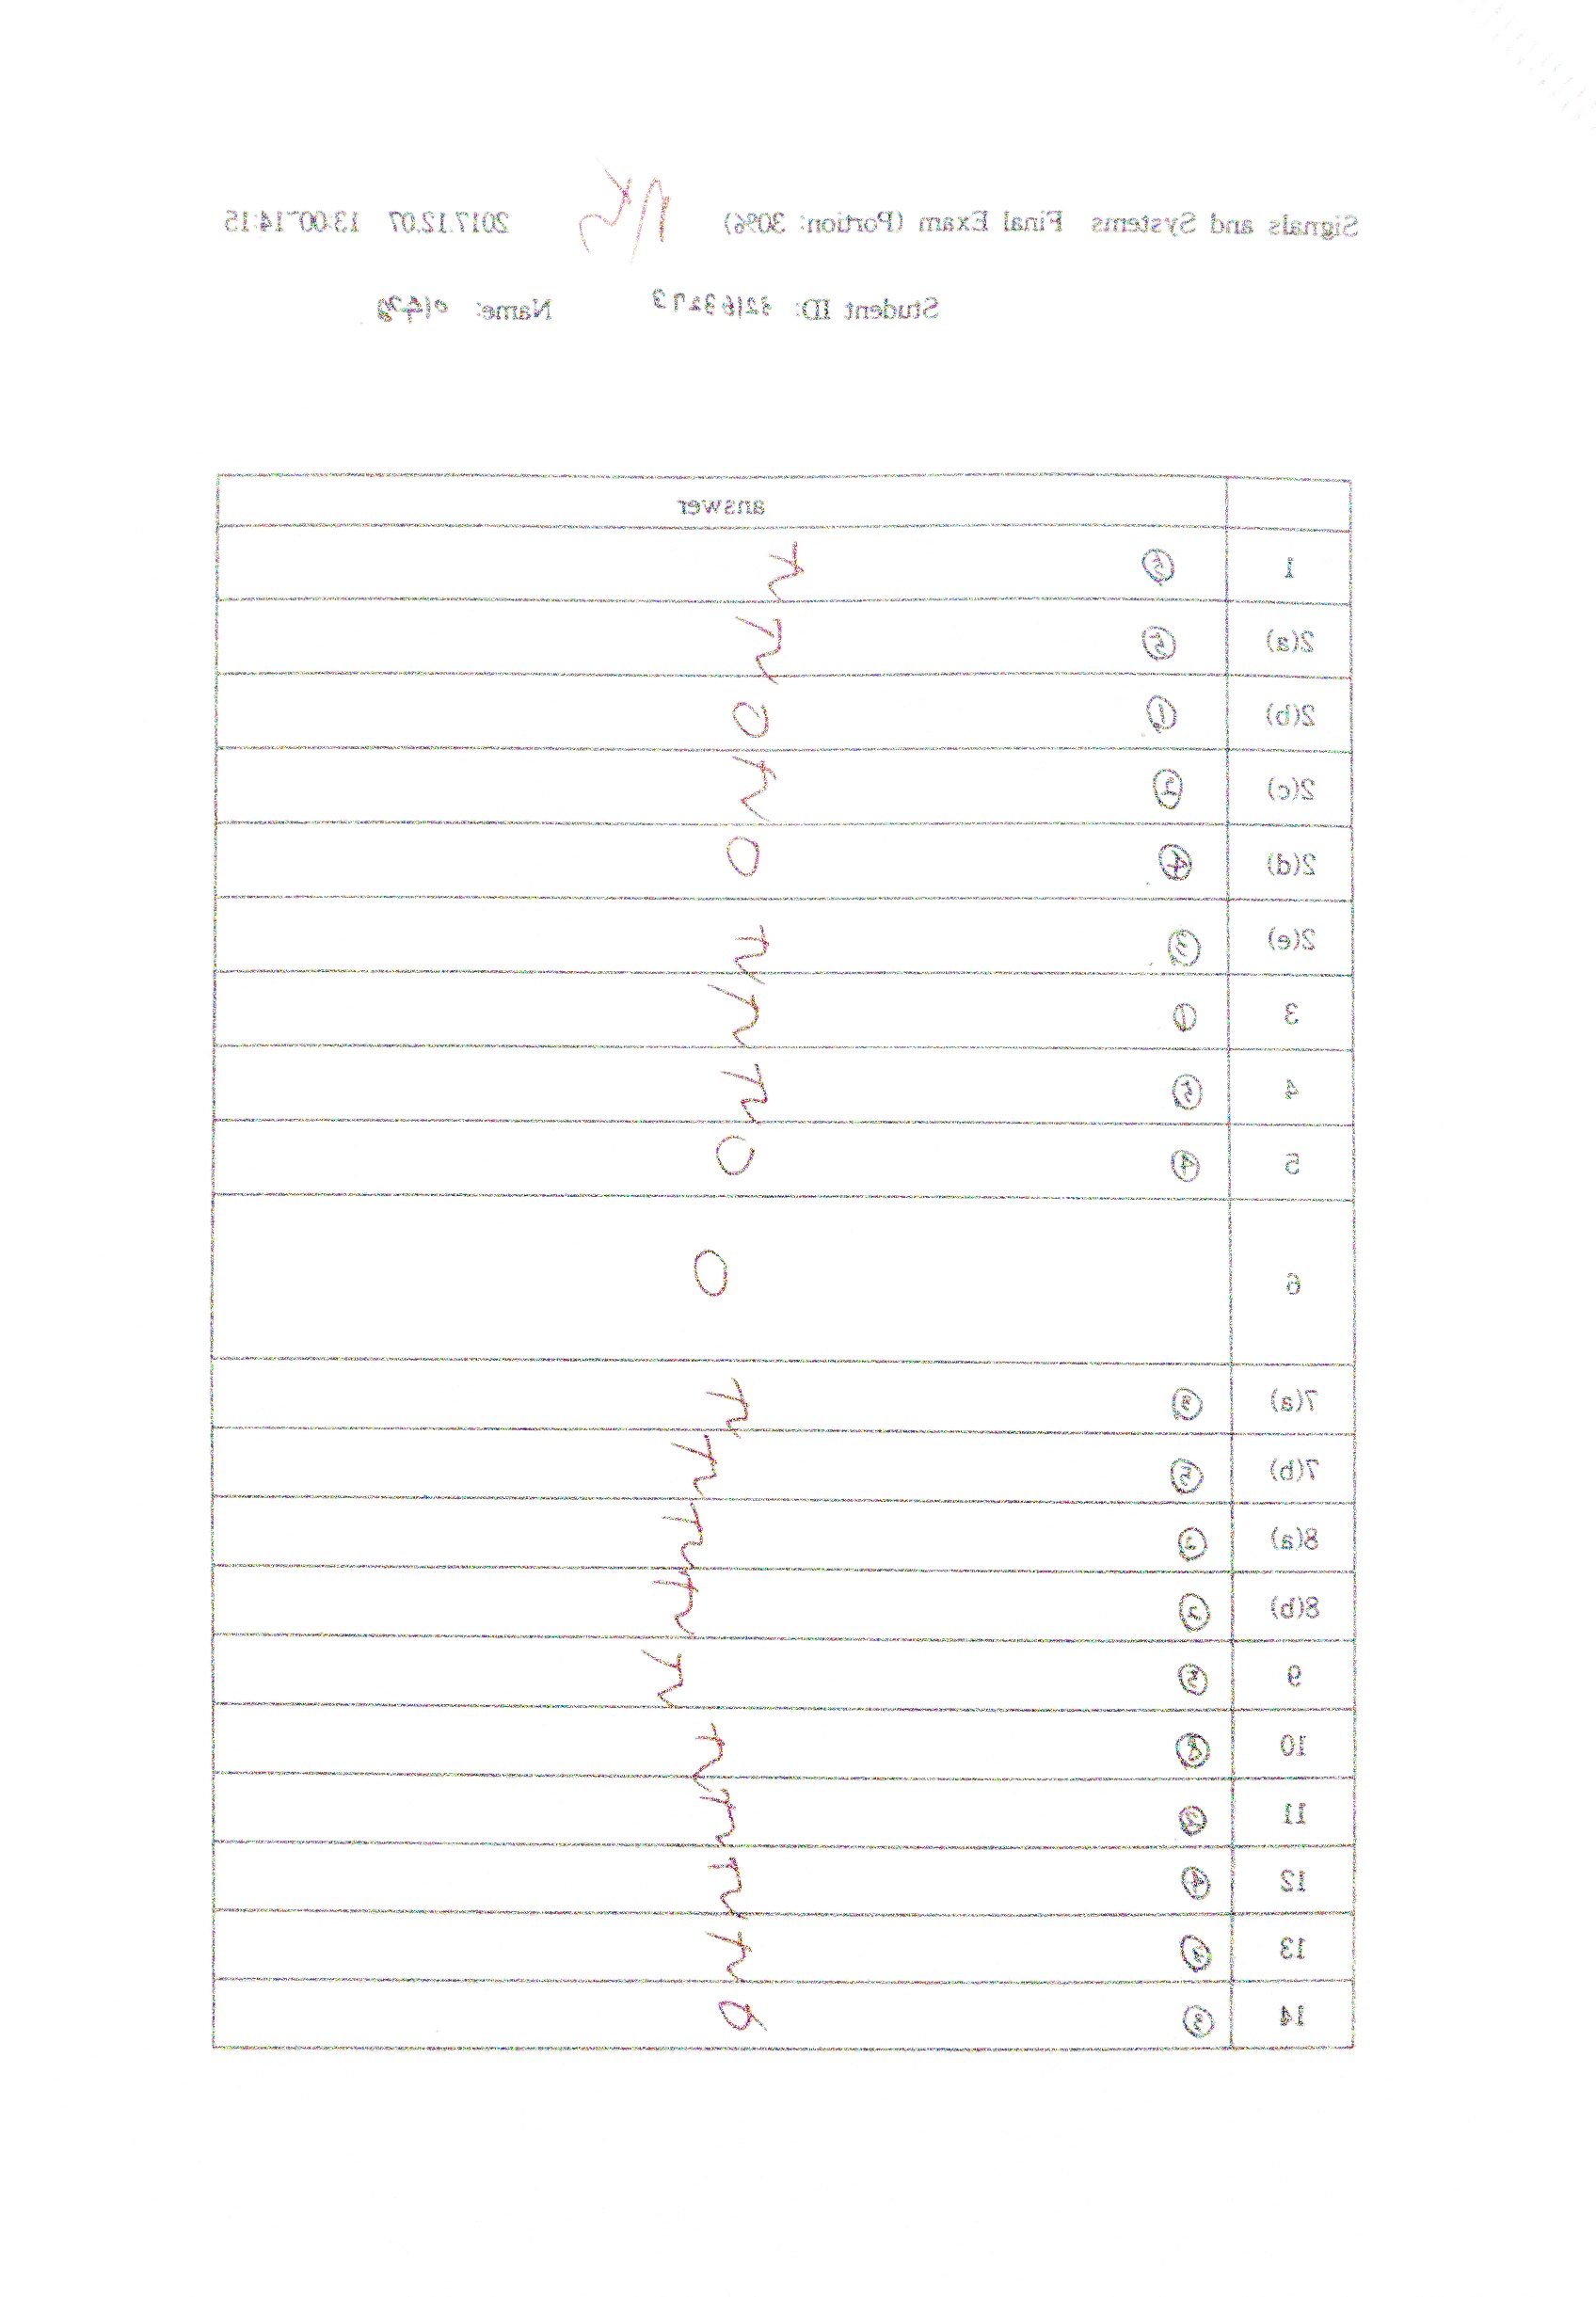 Signals and Systems Final Exam (Portion: 30%) 2017.12.07 13:00~14:15
Student ID: 32163273 Name:
answer
1 ⑤
2(a) ⑤
2(b) ①
2(c) ②
2(d) ④
2(e) ③
3 ①
4 ⑤
5 ④
6
7(a)
7(b) ⑤
8(a) ②
8(b) ②
9 ⑤
10
11
12 ④
13
14 ③